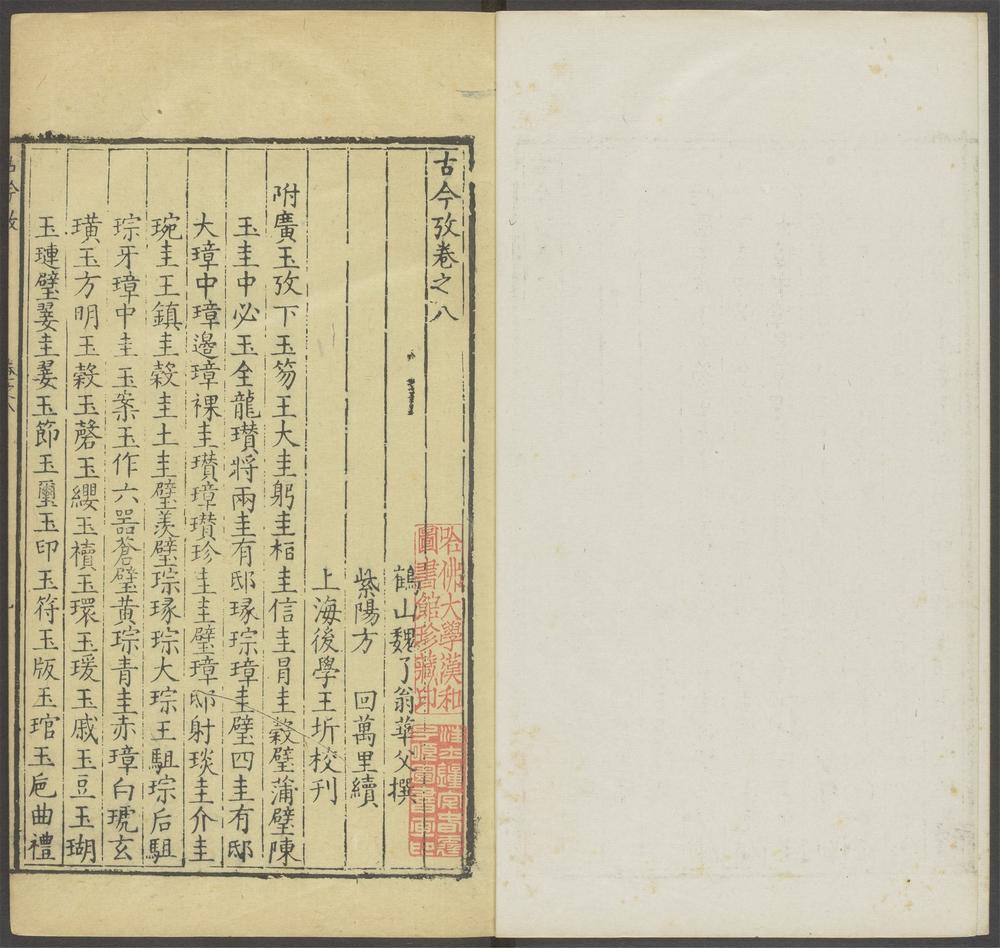 古今攷卷之八
鶴山魏了翁華父撰
紫陽方 回萬里續
上海後學王圻校刊
附廣玉攷下玉笏王大圭躬圭桓圭信圭冒圭穀璧蒲璧陳
玉圭中必玉全龍瓚將兩圭有邸瑑琮璋圭璧四圭有邸
大璋中璋邊璋祼圭瓚璋瓚珍圭圭璧璋邸射琰圭介圭
琬圭王鎮圭穀圭土圭璧羨璧琮瑑琮大琮王駔琮后駔
琮牙璋中圭玉案玉作六器蒼璧黃琮青圭赤璋白琥玄
璜玉方明玉榖玉磬玉纓玉櫝玉環玉瑗玉戚玉豆玉瑚
玉璉璧翣圭翣玉節玉璽玉印玉符玉版玉琯玉巵曲禮
古今攷
哈佛大學漢和
圖書館珍藏印